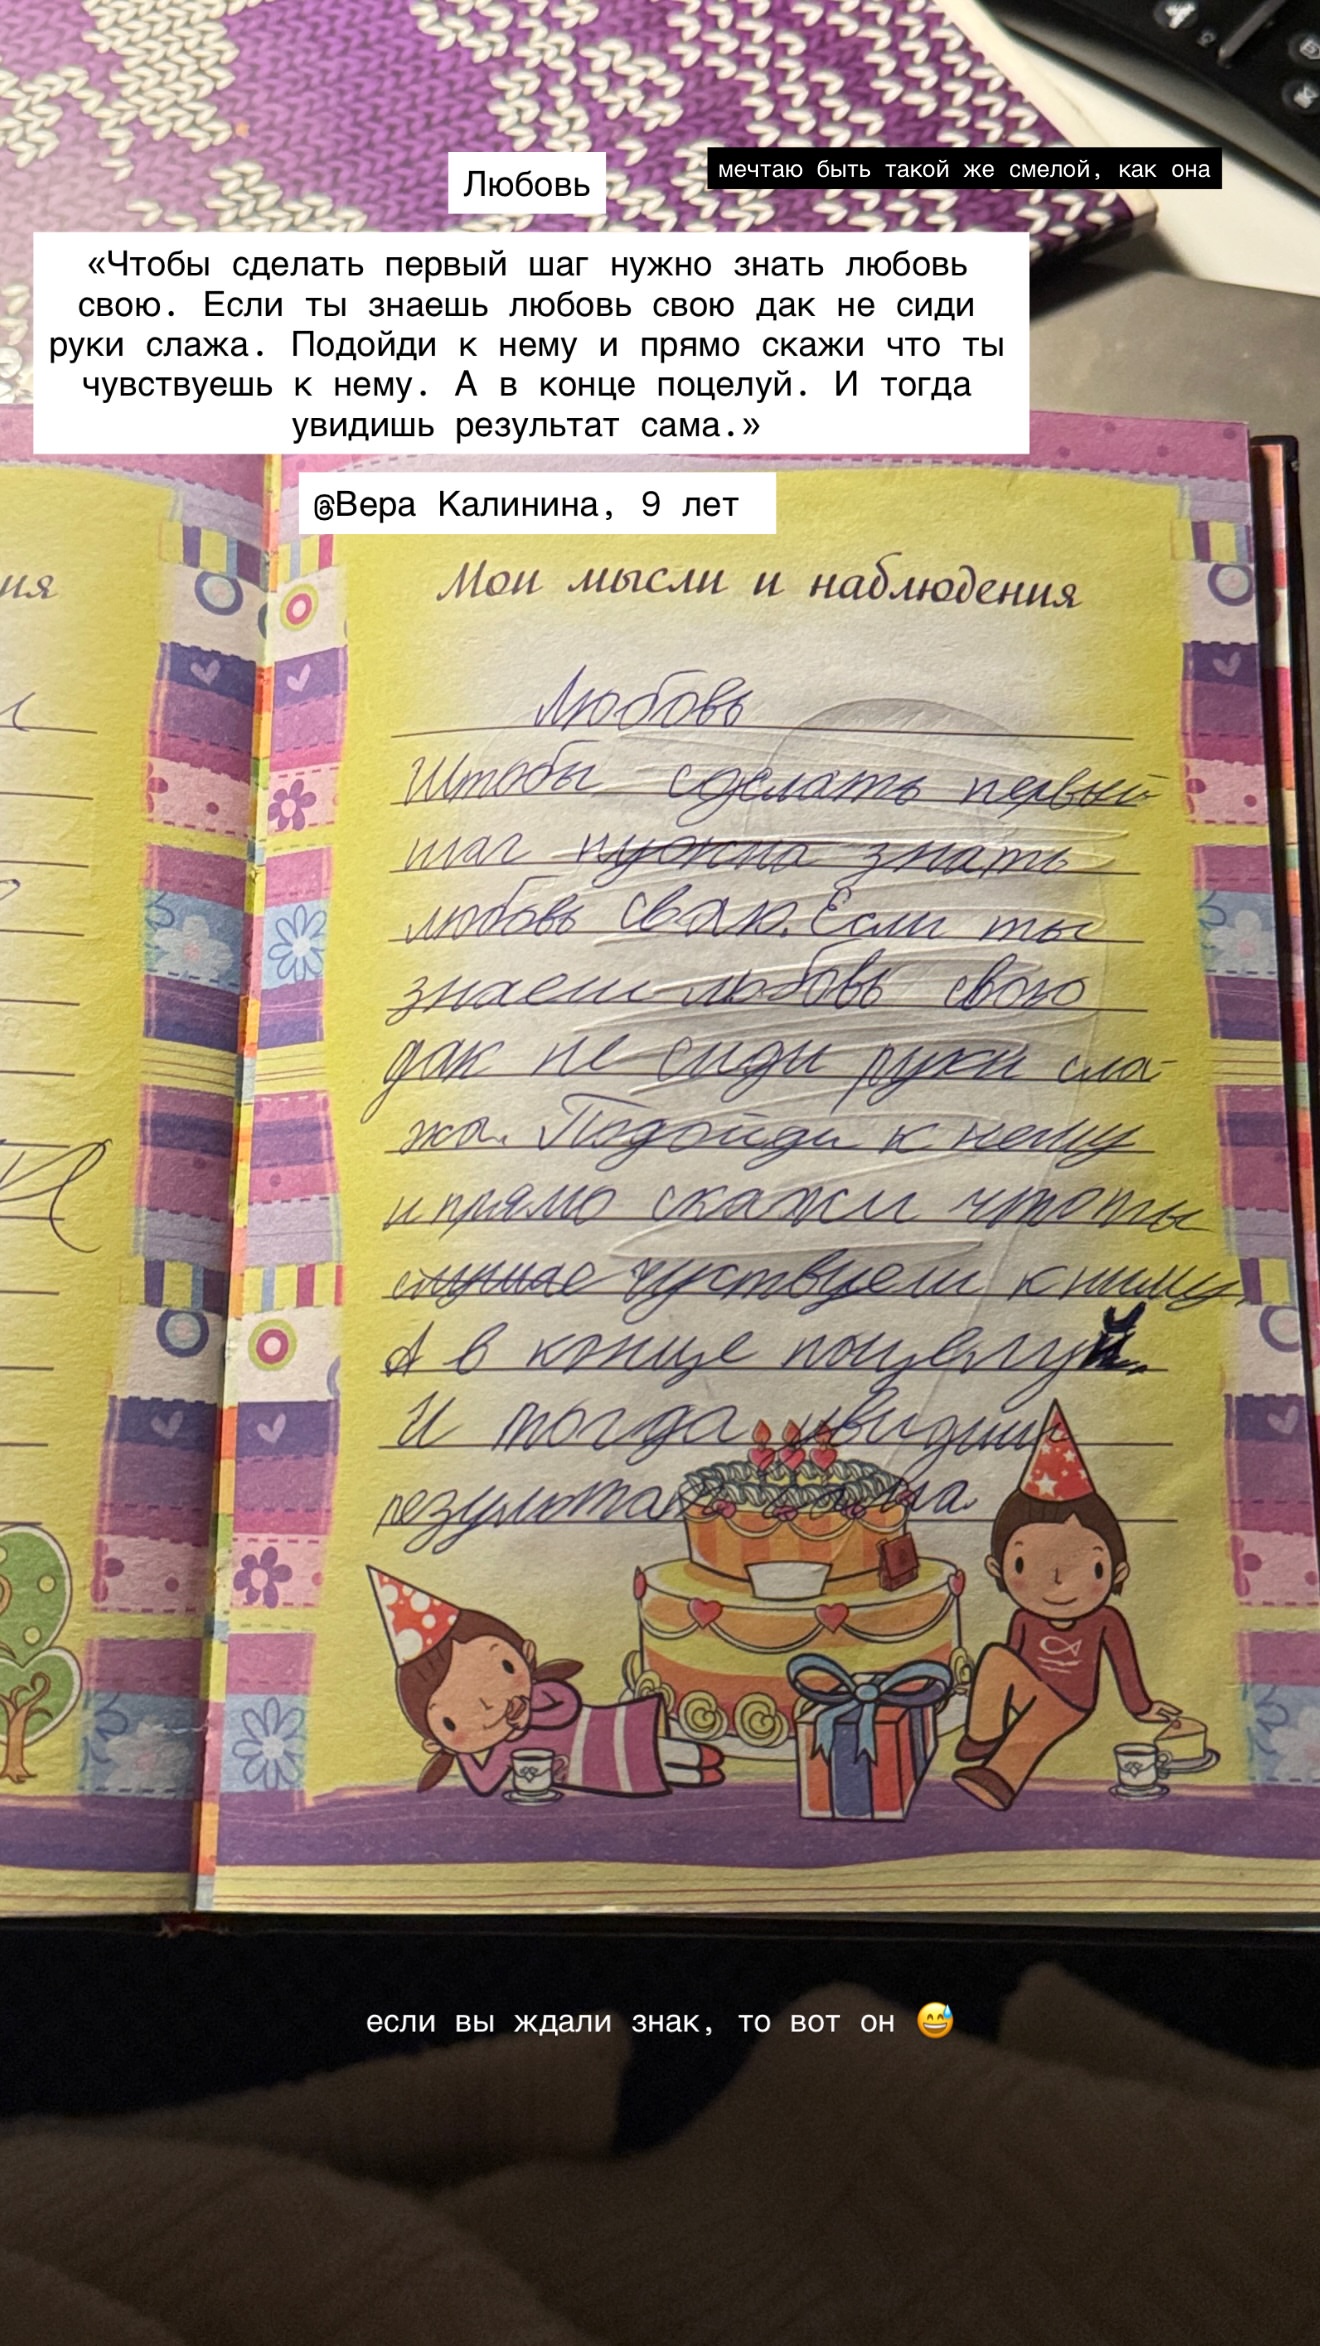 Любовь
мечтаю быть такой же смелой, как она
«Чтобы сделать первый шаг нужно знать любовь
свою. Если ты знаешь любовь свою дак не сиди
руки слажа. Подойди к нему и прямо скажи что ты
чувствуешь к нему. А в конце поцелуй. И тогда
увидишь результат сама.»
@Вера Калинина, 9 лет
ия
Мои мысли и наблюдения
Любовь
Штобы сделать первый
шаг нужна знать
любовь сваю. Если ты
знаеш любовь свою
дак не сиди руки сла-
жа. Подойди к нему
и прямо скажи что ты
чуствуеш к ниму.
А в конце поцелуй.
И тогда увидиш
результат сама.
если вы ждали знак, то вот он 😅